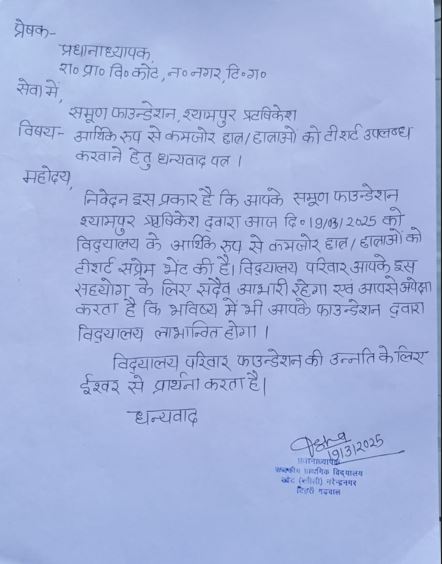 प्रेषक-
प्रधानाध्यापक,
रा० प्रा० वि० कोट, न० नगर, टि० ग०
सेवा में,
समूण फाउन्डेशन, श्यामपुर ऋषिकेश
विषय- आर्थिक रूप से कमजोर छात्र/छात्राओं को टीशर्ट उपलब्ध
करवाने हेतु धन्यवाद पत्र ।
महोदय,
निवेदन इस प्रकार है कि आपके समूण फाउन्डेशन
श्यामपुर ऋषिकेश द्वारा आज दि० 19/03/2025 को
विद्यालय के आर्थिक रूप से कमजोर छात्र/छात्राओं को
टीशर्ट सप्रेम भेंट की है। विद्यालय परिवार आपके इस
सहयोग के लिए सदैव आभारी रहेगा एवं आपसे अपेक्षा
करता है कि भविष्य में भी आपके फाउन्डेशन द्वारा
विद्यालय लाभान्वित होगा ।
विद्यालय परिवार फाउन्डेशन की उन्नति के लिए
ईश्वर से प्रार्थना करता है।
धन्यवाद
19/3/2025
प्रधानाध्यापक
राजकीय प्राथमिक विद्यालय
कोट नरेन्द्रनगर
टिहरी गढ़वाल